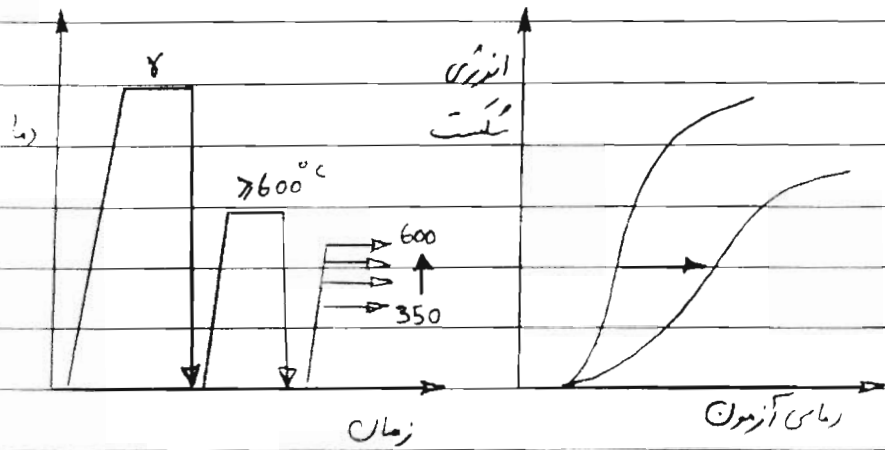 γ
دما
≥600°C
600
350
زمان
انرژی
شکست
دمای آزمون